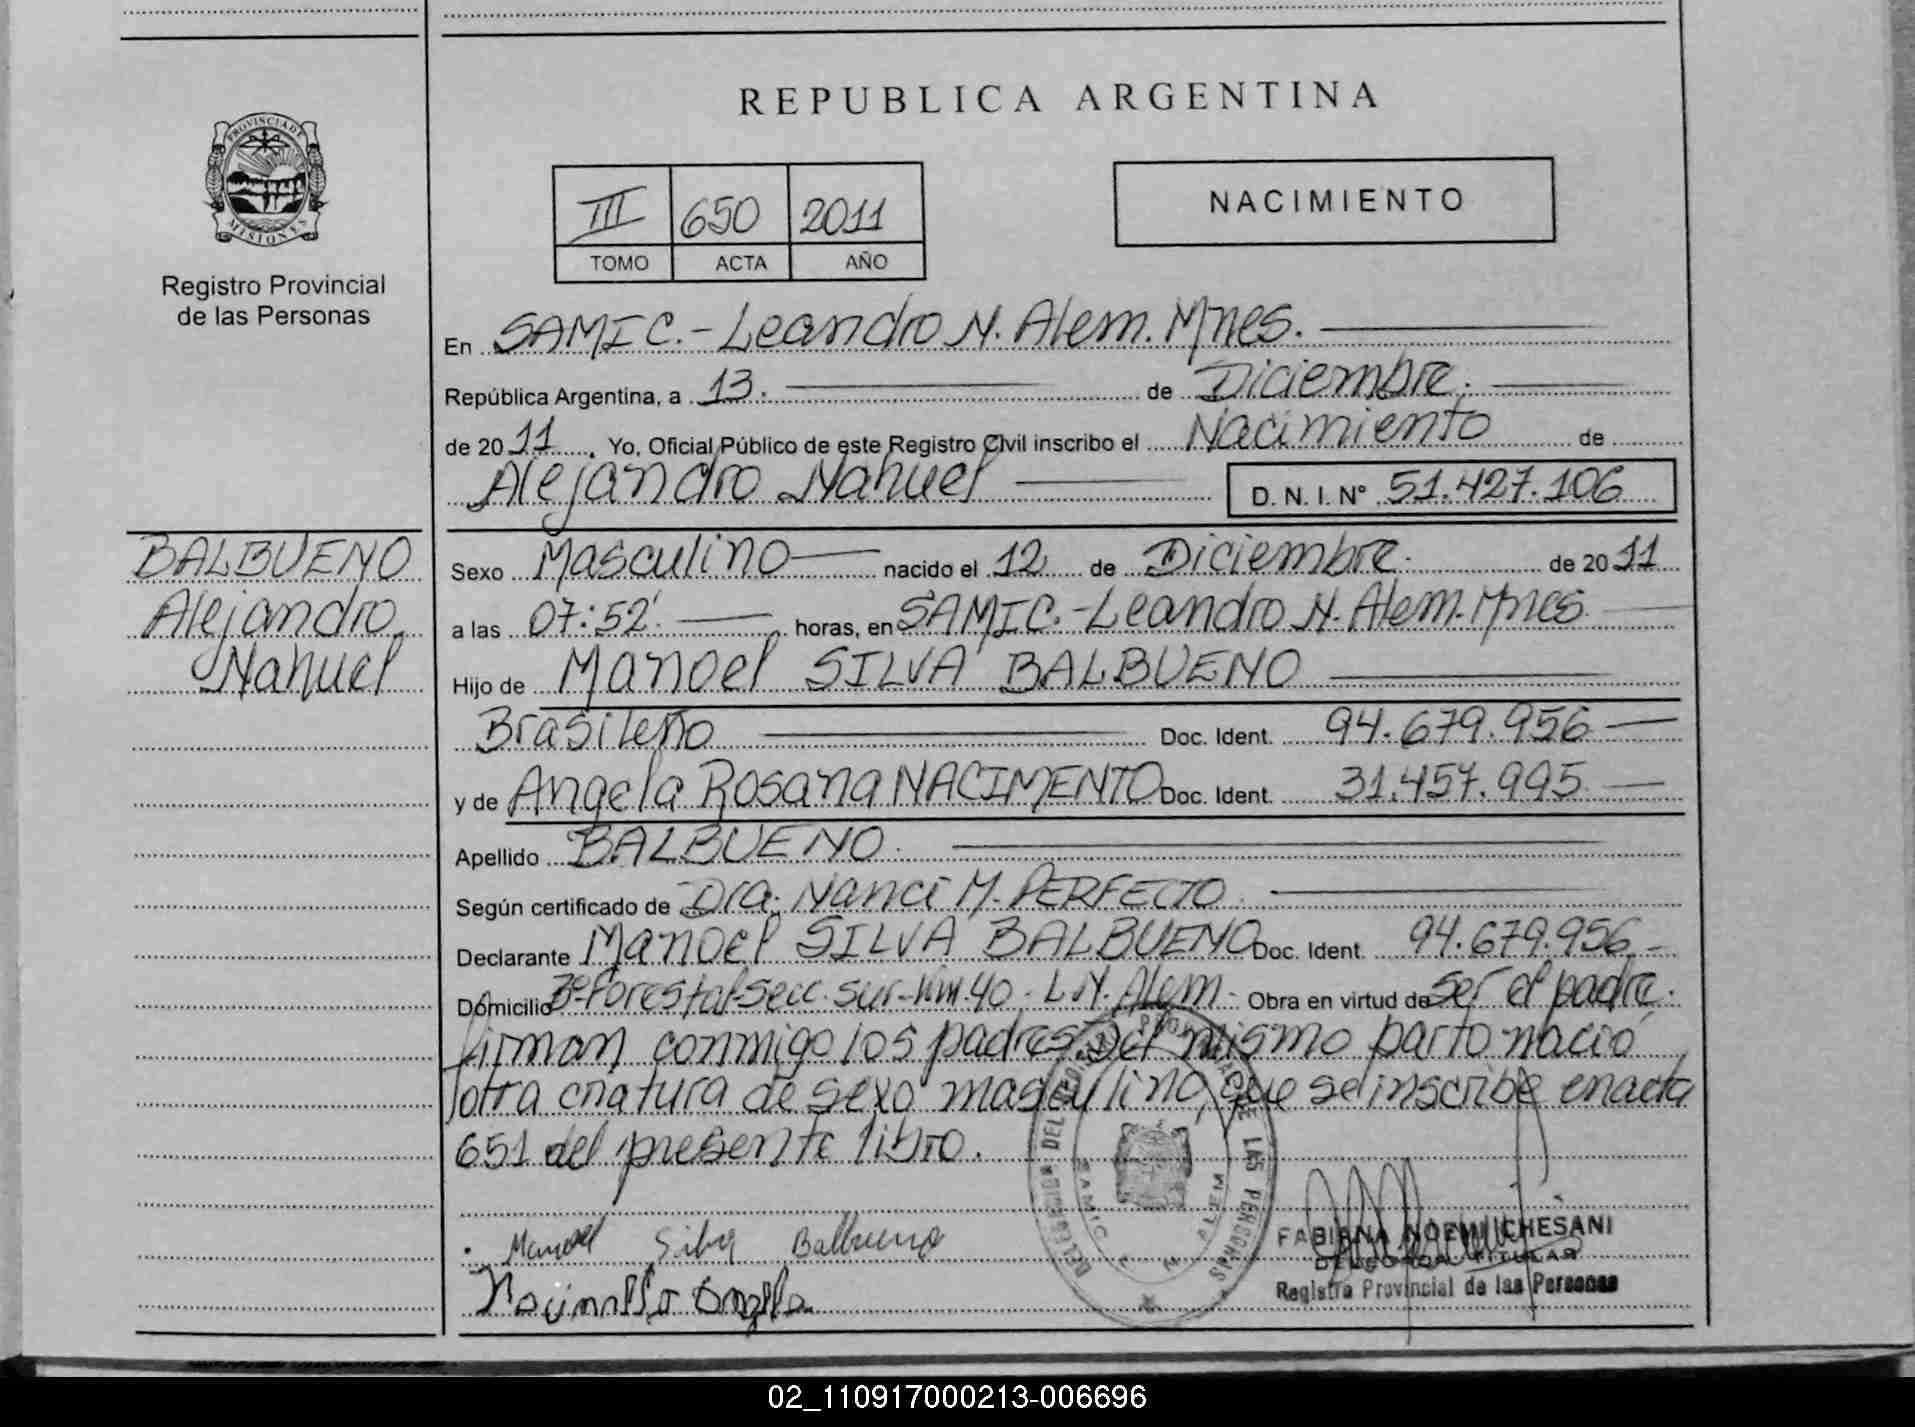 REPUBLICA ARGENTINA
PROVINCIA DE MISIONES
Registro Provincial
de las Personas
III 650 2011
TOMO ACTA AÑO
NACIMIENTO
En SAMIC.-Leandro N. Alem. Mnes.
República Argentina, a 13. de Diciembre.
de 2011. Yo, Oficial Público de este Registro Civil inscribo el Nacimiento de
Alejandro Nahuel D. N. I. Nº 51.427.106
BALBUENO
Alejandro
Nahuel
Sexo Masculino nacido el 12 de Diciembre. de 2011
a las 07:52'. horas, en SAMIC.-Leandro N. Alem. Mnes
Hijo de Manoel SILVA BALBUENO
Brasileño Doc. Ident. 94.679.956
y de Angela Rosana NACIMENTO Doc. Ident. 31.457.995
Apellido BALBUENO.
Según certificado de Dra. Nanci M. PERFECTO.
Declarante Manoel SILVA BALBUENO Doc. Ident. 94.679.956
Domicilio 3º-Forestal-secc. sur-km.40. L.N. Alem- Obra en virtud de ser el padre.
firman conmigo los padres. Del mismo parto nació
otra criatura de sexo masculino, que se inscribe en acta
651 del presente libro.
Manoel Silva Balbueno
FABIANA NOEMI CHESANI
DELEGADA TITULAR
Registro Provincial de las Personas
DE LAS PERSONAS
SAMIC L. N. ALEM
02_110917000213-006696